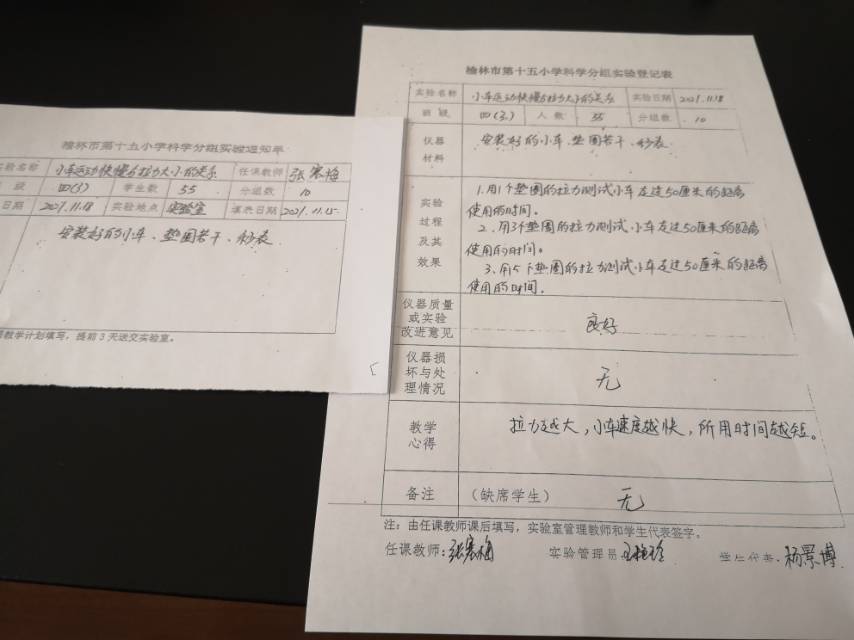 榆林市第十五小学科学分组实验通知单
实验名称 小车运动快慢与拉力大小的关系 任课教师 张寒梅
级 四(5) 学生数 55 分组数 10
日期 2021.11.18 实验地点 实验室 填表日期 2021.11.15
安装好的小车、垫圈若干、秒表
教学计划填写，提前3天送交实验室。
榆林市第十五小学科学分组实验登记表
实验名称 小车运动快慢与拉力大小的关系 实验日期 2021.11.18
班级 四(5) 人数 55 分组数 10
仪器
材料
安装好的小车、垫圈若干、秒表
实验
过程
及其
效果
1.用1个垫圈的拉力测试小车走过50厘米的距离
使用的时间。
2.用3个垫圈的拉力测试小车走过50厘米的距离
使用的时间。
3.用5个垫圈的拉力测试小车走过50厘米的距离
使用的时间。
仪器质量
或实验
改进意见
良好
仪器损
坏与处
理情况
无
教学
心得
拉力越大，小车速度越快，所用时间越短。
备注 （缺席学生） 无
注：由任课教师课后填写，实验室管理教师和学生代表签字。
任课教师：张寒梅 实验管理员 学生代表：杨景博